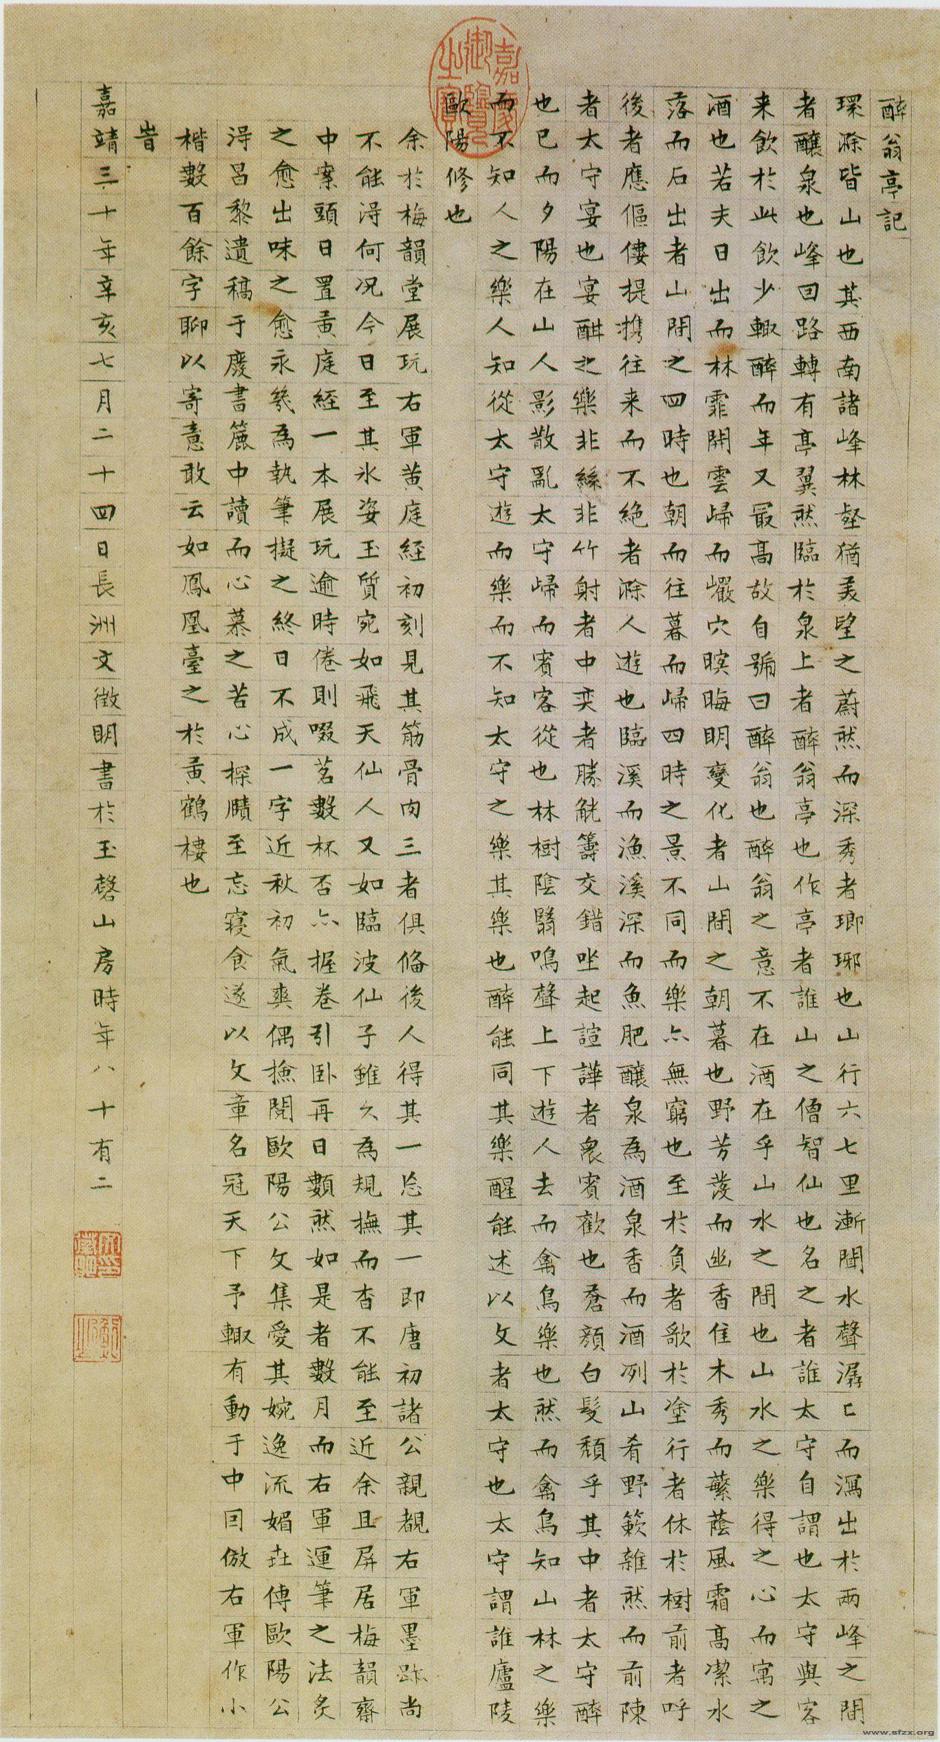 醉翁亭記
環滁皆山也其西南諸峰林壑猶美望之蔚然而深秀者瑯琊也山行六七里漸聞水聲潺〻而瀉出於兩峰之間
者釀泉也峰回路轉有亭翼然臨於泉上者醉翁亭也作亭者誰山之僧智仙也名之者誰太守自謂也太守與客
来飲於此飲少輒醉而年又最高故自號曰醉翁也醉翁之意不在酒在乎山水之間也山水之樂得之心而寓之
酒也若夫日出而林霏開雲歸而巖穴暝晦明變化者山間之朝暮也野芳發而幽香佳木秀而蘩蔭風霜高潔水
落而石出者山間之四時也朝而往暮而歸四時之景不同而樂亦無窮也至於負者歌於塗行者休於樹前者呼
後者應傴僂提攜往来而不絕者滁人遊也臨溪而漁溪深而魚肥釀泉為酒泉香而酒冽山肴野簌雜然而前陳
者太守宴也宴酣之樂非絲非竹射者中奕者勝觥籌交錯坐起諠譁者衆賓歡也蒼顏白髮頹乎其中者太守醉
也已而夕陽在山人影散亂太守歸而賓客從也林樹陰翳鳴聲上下遊人去而禽鳥樂也然而禽鳥知山林之樂
而不知人之樂人知從太守遊而樂而不知太守之樂其樂也醉能同其樂醒能述以文者太守也太守謂誰廬陵
歐陽修也
余於梅韻堂展玩右軍黄庭經初刻見其筋骨肉三者俱俻後人得其一忘其一即唐初諸公親覩右軍墨跡尚
不能淂何况今日至其氷姿玉質宛如飛天仙人又如臨波仙子雖久為規撫而杳不能至近余且屏居梅韻齋
中案頭日置黄庭經一本展玩逾時倦則啜茗數杯否亦握卷引卧再日數然如是者數月而右軍運筆之法炙
之愈出味之愈永幾為執筆擬之終日不成一字近秋初氣爽偶撿開歐陽公文集愛其婉逸流媚昔傳歐陽公
淂昌黎遺稿于廢書簏中讀而心慕之苦心探賾至忘寢食遂以文章名冠天下予輒有動于中囙倣右軍作小
楷數百餘字聊以寄意敢云如鳳凰臺之於黄鶴樓也
旹
嘉靖三十年辛亥七月二十四日長洲文徵明書於玉磬山房時年八十有二
嘉慶御覽之寶
文徵明印
www.sfzx.org